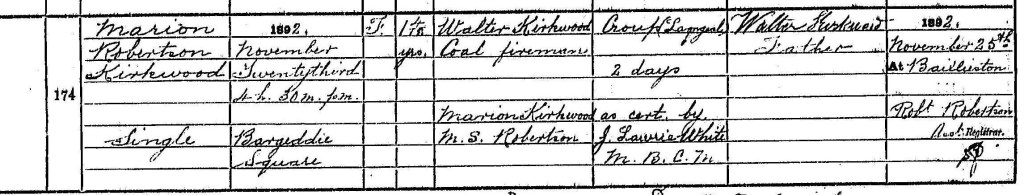 174
Marion
Robertson
Kirkwood
Single
1892.
November
Twentythird
4 h. 30 m. p.m.
Bargeddie
Square
F.
yrs.
Walter Kirkwood
Coal fireman
Marion Kirkwood
M. S. Robertson
Croup (Laryngeal)
2 days
as cert. by
J. Lawrie White
M. B. C. M
Walter Kirkwood
Father
1892.
November 25th
At Baillieston
Robt Robertson
Asst. Registrar.